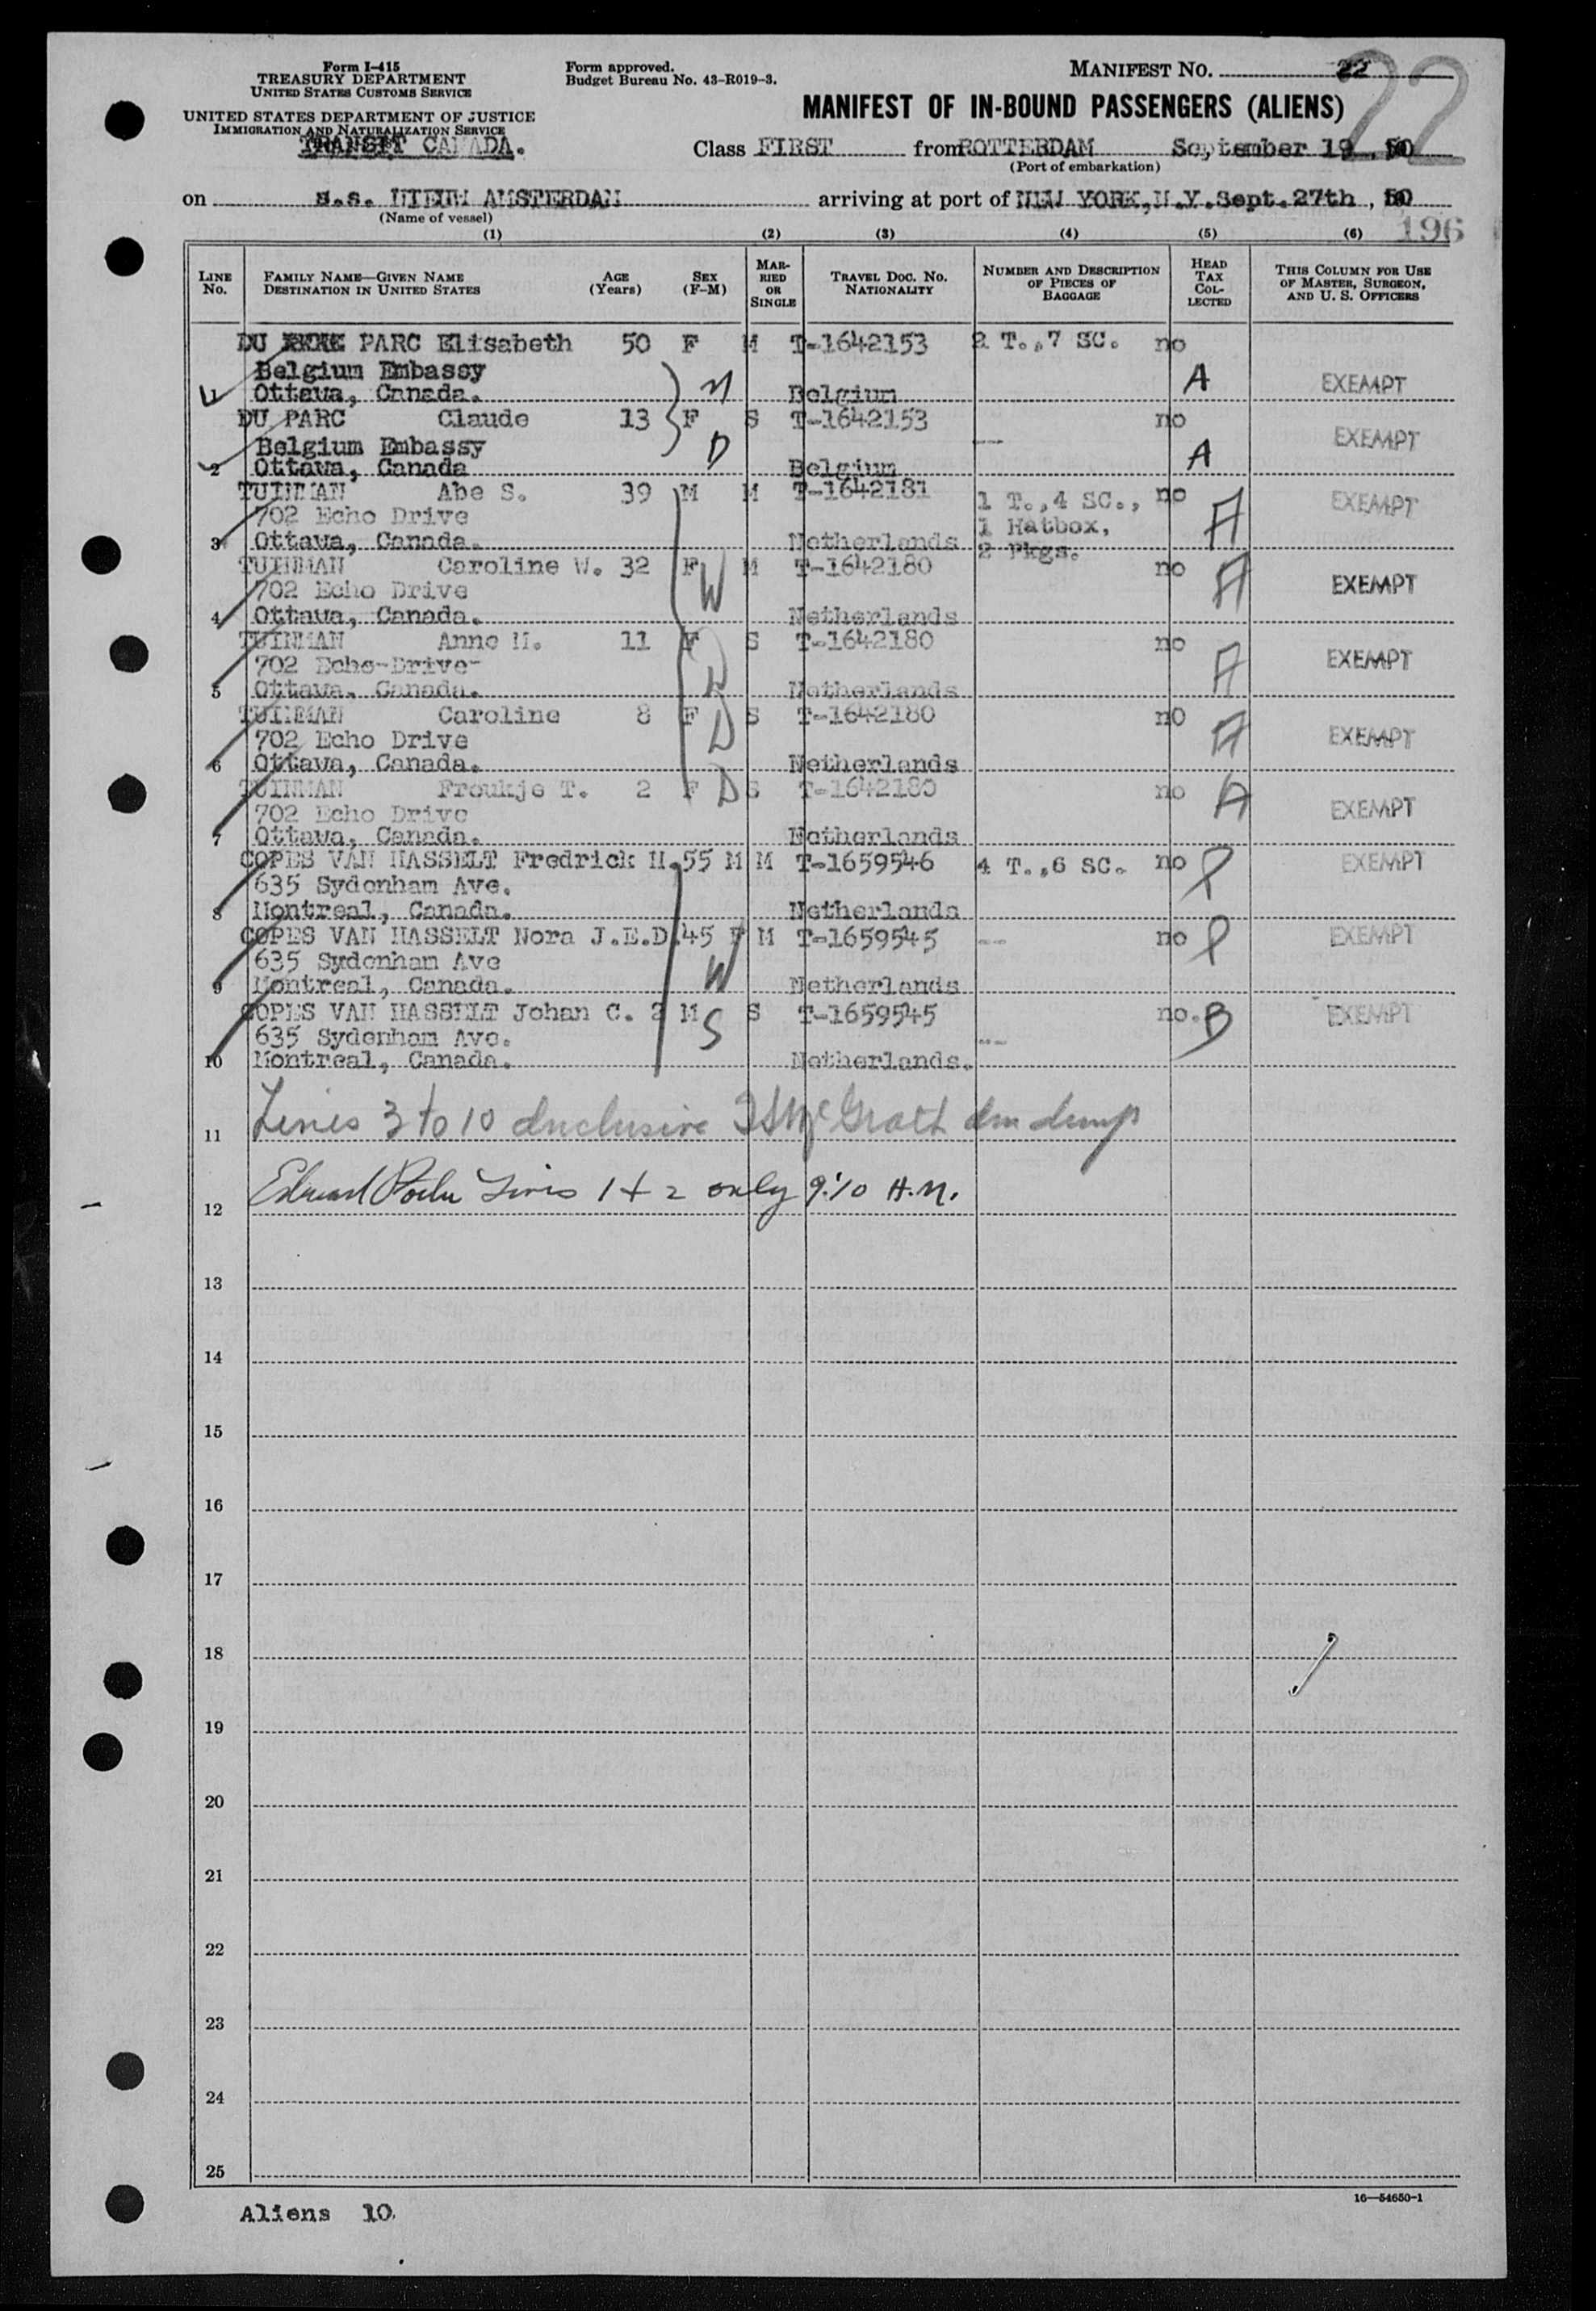 Form I-415
TREASURY DEPARTMENT
UNITED STATES CUSTOMS SERVICE
UNITED STATES DEPARTMENT OF JUSTICE
IMMIGRATION AND NATURALIZATION SERVICE
TRANSIT CANADA.
Form approved.
Budget Bureau No. 43-R019-3.
MANIFEST NO. 22
22
MANIFEST OF IN-BOUND PASSENGERS (ALIENS)
Class FIRST from ROTTERDAM September 19, 50
(Port of embarkation)
on s.s. NIEUW AMSTERDAM arriving at port of NEW YORK,N.Y.Sept.27th, 50
(Name of vessel)
196
(1) (2) (3) (4) (5) (6)
LINE No. FAMILY NAME—GIVEN NAME DESTINATION IN UNITED STATES AGE (Years) SEX (F-M) MARRIED OR SINGLE TRAVEL DOC. NO. NATIONALITY NUMBER AND DESCRIPTION OF PIECES OF BAGGAGE HEAD TAX COLLECTED THIS COLUMN FOR USE OF MASTER, SURGEON, AND U. S. OFFICERS
DU PARC Elisabeth 50 F M T-1642153 2 T.,7 SC. no
Belgium Embassy M A EXEMPT
1 Ottawa, Canada. Belgium
DU PARC Claude 13 F S T-1642153 -- no
Belgium Embassy D A EXEMPT
2 Ottawa, Canada Belgium
TUINMAN Abe S. 39 M M T-1642181 1 T.,4 SC., no
702 Echo Drive 1 Hatbox, A EXEMPT
3 Ottawa, Canada. Netherlands 2 Pkgs.
TUINMAN Caroline W. 32 F M T-1642180 no
702 Echo Drive W A EXEMPT
4 Ottawa, Canada. Netherlands
TUINMAN Anne H. 11 F S T-1642180 no
702 Echo-Drive- D A EXEMPT
5 Ottawa, Canada. Netherlands
TUINMAN Caroline 8 F S T-1642180 nO
702 Echo Drive D A EXEMPT
6 Ottawa, Canada. Netherlands
TUINMAN Froukje T. 2 F D S T-1642180 no A
702 Echo Drive EXEMPT
7 Ottawa, Canada. Netherlands
COPES VAN HASSELT Fredrick H. 55 M M T-1659546 4 T.,6 SC. no P EXEMPT
635 Sydenham Ave.
8 Montreal, Canada. Netherlands
COPES VAN HASSELT Nora J.E.D. 45 F M T-1659545 -- no P EXEMPT
635 Sydenham Ave W
9 Montreal, Canada. Netherlands
COPES VAN HASSELT Johan C. 2 M S T-1659545 -- no. B EXEMPT
635 Sydenham Ave. S
10 Montreal, Canada. Netherlands.
11 Lines 3 to 10 Inclusive McGrath
12 Edward Lines 1 + 2 only 9:10 A.M.
13
14
15
16
17
18
19
20
21
22
23
24
25
16—54650-1
Aliens 10.